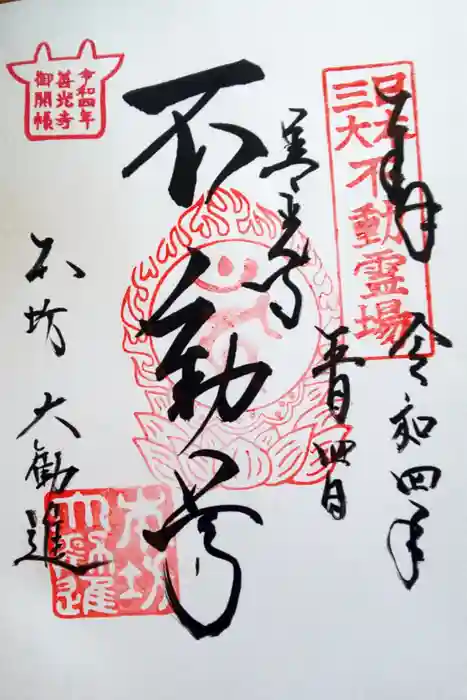 奉拝
令和四年
五月四日
日本
三大不動霊場
善光寺
不動尊
本坊 大勧進
令和四年
善光寺
御開帳
本坊
大勧進